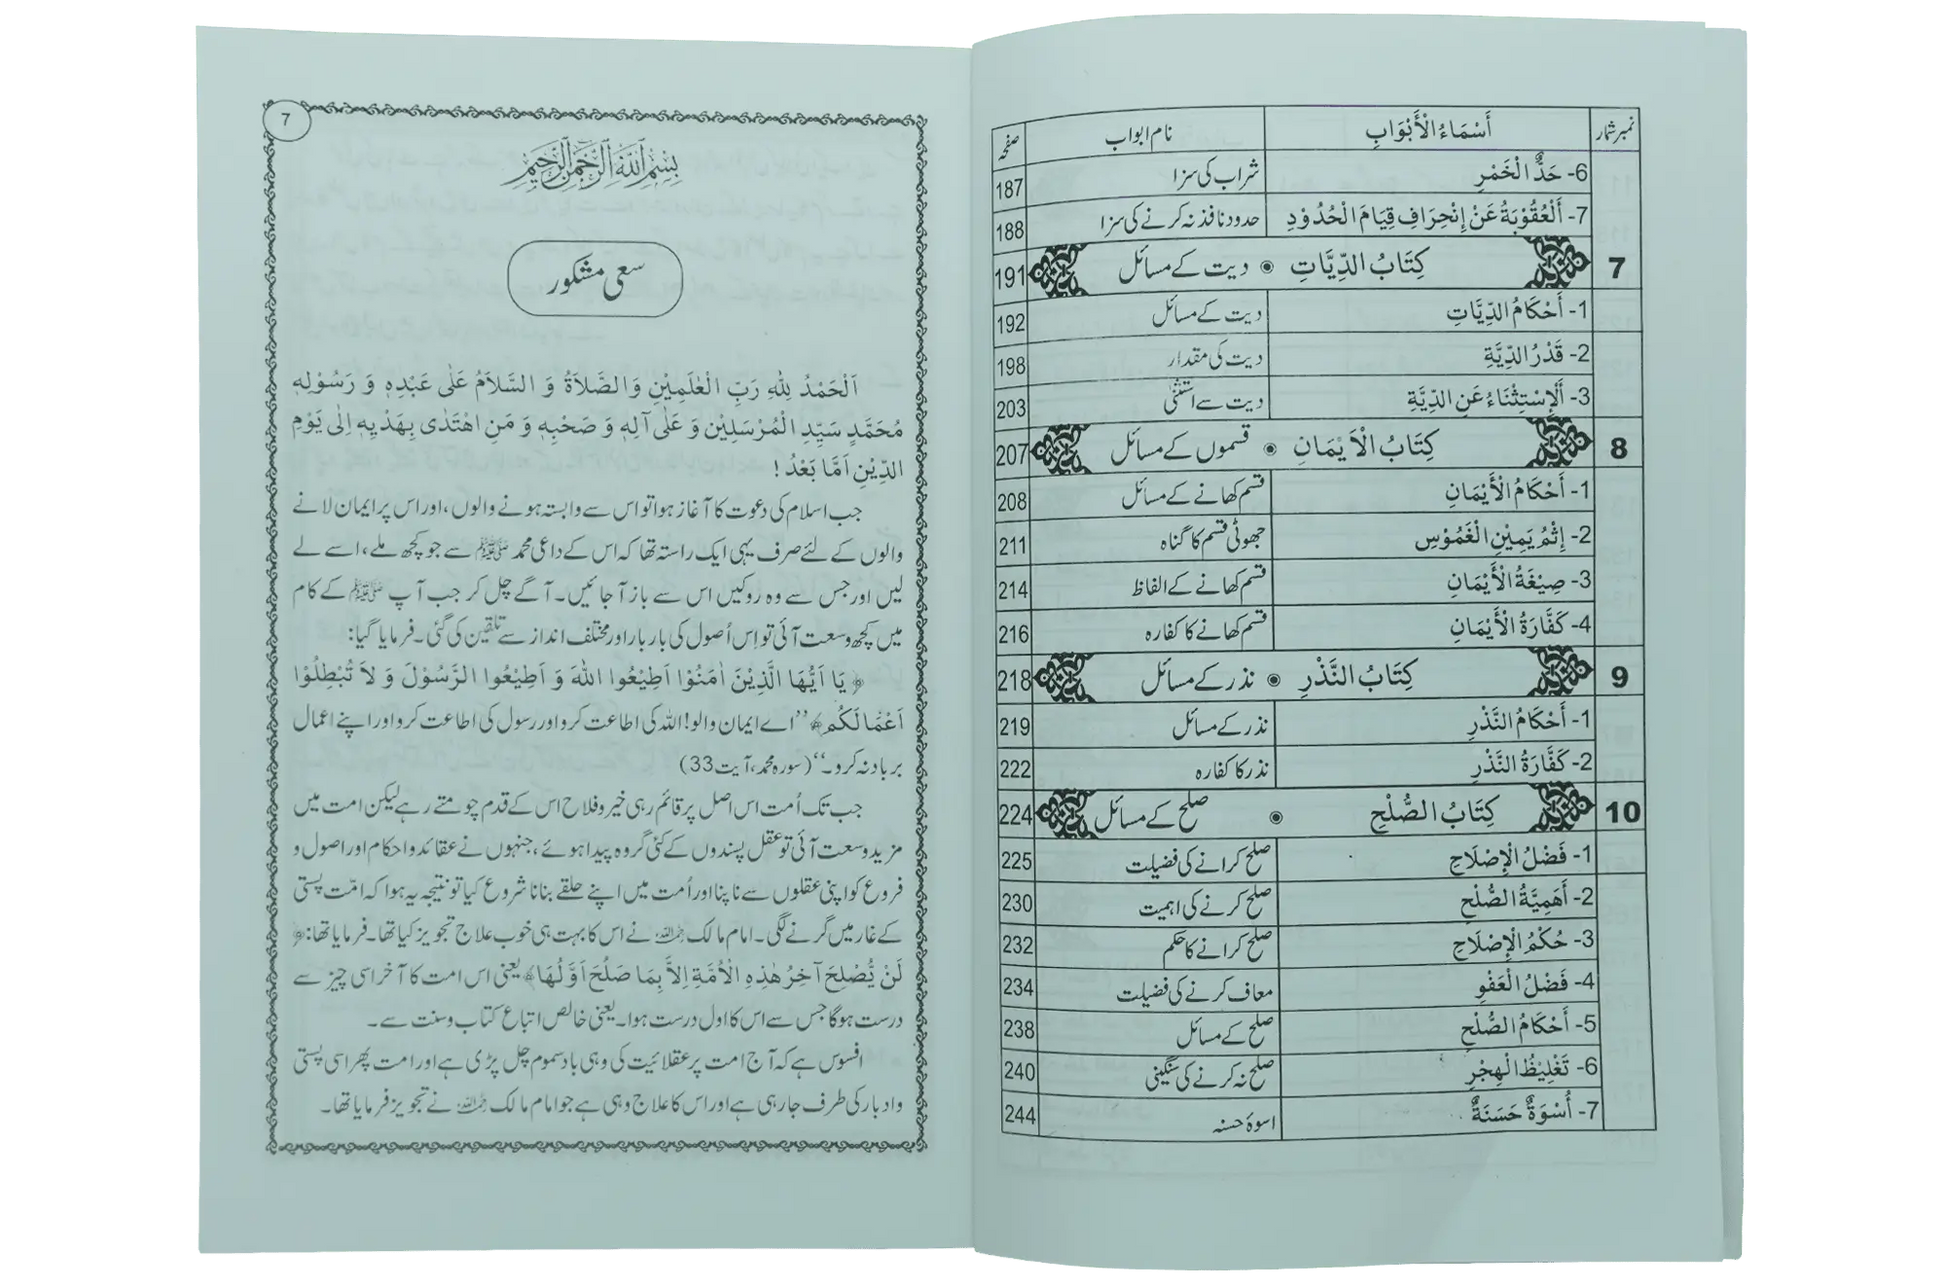 نمبرشمار أَسْمَاءُ الْأَبْوَابِ نام ابواب صفحہ
6- حَدُّ الْخَمْرِ شراب کی سزا 187
7- أَلْعُقُوْبَةُ عَنْ إِنْحِرَافِ قِيَامَ الْحُدُوْدِ حدود نافذ نہ کرنے کی سزا 188
7 كِتَابُ الدِّيَّاتِ دیت کے مسائل 191
1- أَحْكَامُ الدِّيَّاتِ دیت کے مسائل 192
2- قَدْرُ الدِّيَّةِ دیت کی مقدار 198
3- أَلْإِسْتِثْنَاءُ عَنِ الدِّيَّةِ دیت سے استثنیٰ 203
8 كِتَابُ الْاَيْمَانِ قسموں کے مسائل 207
1- أَحْكَامُ الْأَيْمَانِ قسم کھانے کے مسائل 208
2- إِثْمُ يَمِيْنِ الْغَمُوْسِ جھوٹی قسم کا گناہ 211
3- صِيْغَةُ الْأَيْمَانِ قسم کھانے کے الفاظ 214
4- كَفَّارَةُ الْأَيْمَانِ قسم کھانے کا کفارہ 216
9 كِتَابُ النَّذْرِ نذر کے مسائل 218
1- أَحْكَامُ النَّذْرِ نذر کے مسائل 219
2- كَفَّارَةُ النَّذْرِ نذر کا کفارہ 222
10 كِتَابُ الصُّلْحِ صلح کے مسائل 224
1- فَضْلُ الْإِصْلَاحِ صلح کرانے کی فضیلت 225
2- أَهَمِيَّةُ الصُّلْحِ صلح کرنے کی اہمیت 230
3- حُكْمُ الْإِصْلَاحِ صلح کرانے کا حکم 232
4- فَضْلُ الْعَفْوِ معاف کرنے کی فضیلت 234
5- أَحْكَامُ الصُّلْحِ صلح کے مسائل 238
6- تَغْلِيْظُ الْهِجْرِ صلح نہ کرنے کی سنگینی 240
7- أُسْوَةٌ حَسَنَةٌ اسوۂ حسنہ 244
7
بسم الله الرحمن الرحيم
سعی مشکور
اَلْحَمْدُ لِلّٰهِ رَبِّ الْعٰلَمِيْنِ وَالصَّلَاةُ وَ السَّلاَمُ عَلٰى عَبْدِهٖ وَ رَسُوْلِهٖ
مُحَمَّدٍ سَيِّدِ الْمُرْسَلِيْنَ وَ عَلٰى آلِهٖ وَ صَحْبِهٖ وَ مَنِ اهْتَدٰى بِهَدْيِهٖ اِلٰى يَوْمِ
الدِّيْنِ اَمَّا بَعْدُ !
جب اسلام کی دعوت کا آغاز ہوا تو اس سے وابستہ ہونے والوں، اور اس پر ایمان لانے
والوں کے لئے صرف یہی ایک راستہ تھا کہ اس کے داعی محمد ﷺ سے جو کچھ ملے، اسے لے
لیں اور جس سے وہ روکیں اس سے باز آ جائیں۔ آگے چل کر جب آپ ﷺ کے کام
میں کچھ وسعت آئی تو اِس اُصول کی بار بار اور مختلف انداز سے تلقین کی گئی۔ فرمایا گیا:
﴿ يَا اَيُّهَا الَّذِيْنَ اٰمَنُوْا اَطِيْعُوا اللّٰهَ وَ اَطِيْعُوا الرَّسُوْلَ وَ لاَ تُبْطِلُوْا
اَعْمَالَكُم﴾ ’’اے ایمان والو! اللہ کی اطاعت کرو اور رسول کی اطاعت کرو اور اپنے اعمال
برباد نہ کرو۔‘‘ (سورہ محمد، آیت 33)
جب تک اُمت اس اصل پر قائم رہی خیر و فلاح اس کے قدم چومتے رہے لیکن امت میں
مزید وسعت آئی تو عقل پسندوں کے کئی گروہ پیدا ہوئے، جنہوں نے عقائد و احکام اور اصول و
فروع کو اپنی عقلوں سے ناپنا اور اُمت میں اپنے حلقے بنانا شروع کیا تو نتیجہ یہ ہوا کہ امّت پستی
کے غار میں گرنے لگی۔ امام مالک رحمہ اللہ نے اس کا بہت ہی خوب علاج تجویز کیا تھا۔ فرمایا تھا: ﴿
لَنْ يُّصْلِحَ آخِرُ هٰذِهِ الْاُمَّةِ اِلاَّ بِمَا صَلُحَ اَوَّلُهَا﴾ یعنی اس امت کا آخر اسی چیز سے
درست ہوگا جس سے اس کا اول درست ہوا۔ یعنی خالص اتباع کتاب و سنت سے۔
افسوس ہے کہ آج امت پر عقلائیت کی وہی باد سموم چل پڑی ہے اور امت پھر اسی پستی
و ادبار کی طرف جا رہی ہے اور اس کا علاج وہی ہے جو امام مالک رحمہ اللہ نے تجویز فرمایا تھا۔